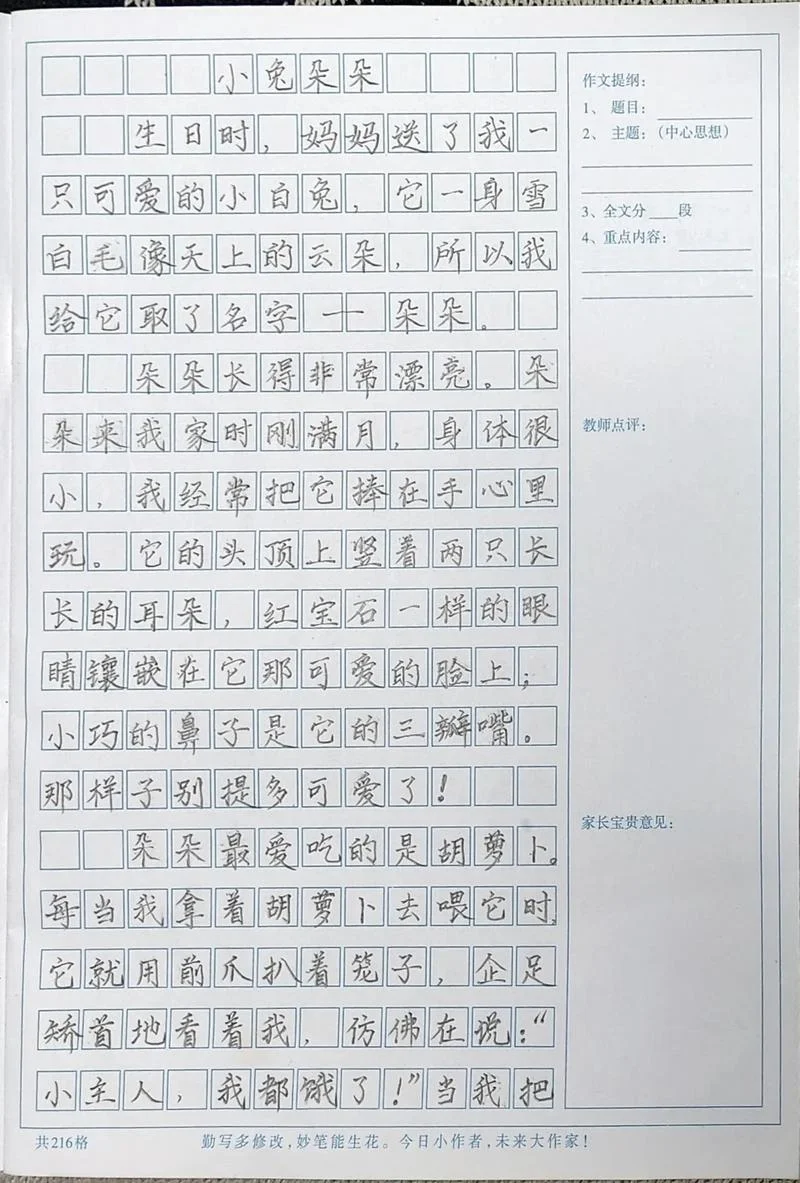 小兔朵朵
生日时，妈妈送了我一
只可爱的小白兔，它一身雪
白毛像天上的云朵，所以我
给它取了名字——朵朵。
朵朵长得非常漂亮。朵
朵来我家时刚满月，身体很
小，我经常把它捧在手心里
玩。它的头顶上竖着两只长
长的耳朵，红宝石一样的眼
睛镶嵌在它那可爱的脸上；
小巧的鼻子是它的三瓣嘴。
那样子别提多可爱了！
朵朵最爱吃的是胡萝卜。
每当我拿着胡萝卜去喂它时，
它就用前爪扒着笼子，企足
矫首地看着我，仿佛在说：“
小主人，我都饿了！”当我把
作文提纲：
1、 题目：
2、 主题：（中心思想）
3、全文分____段
4、重点内容：
教师点评：
家长宝贵意见：
共216格
勤写多修改，妙笔能生花。今日小作者，未来大作家！